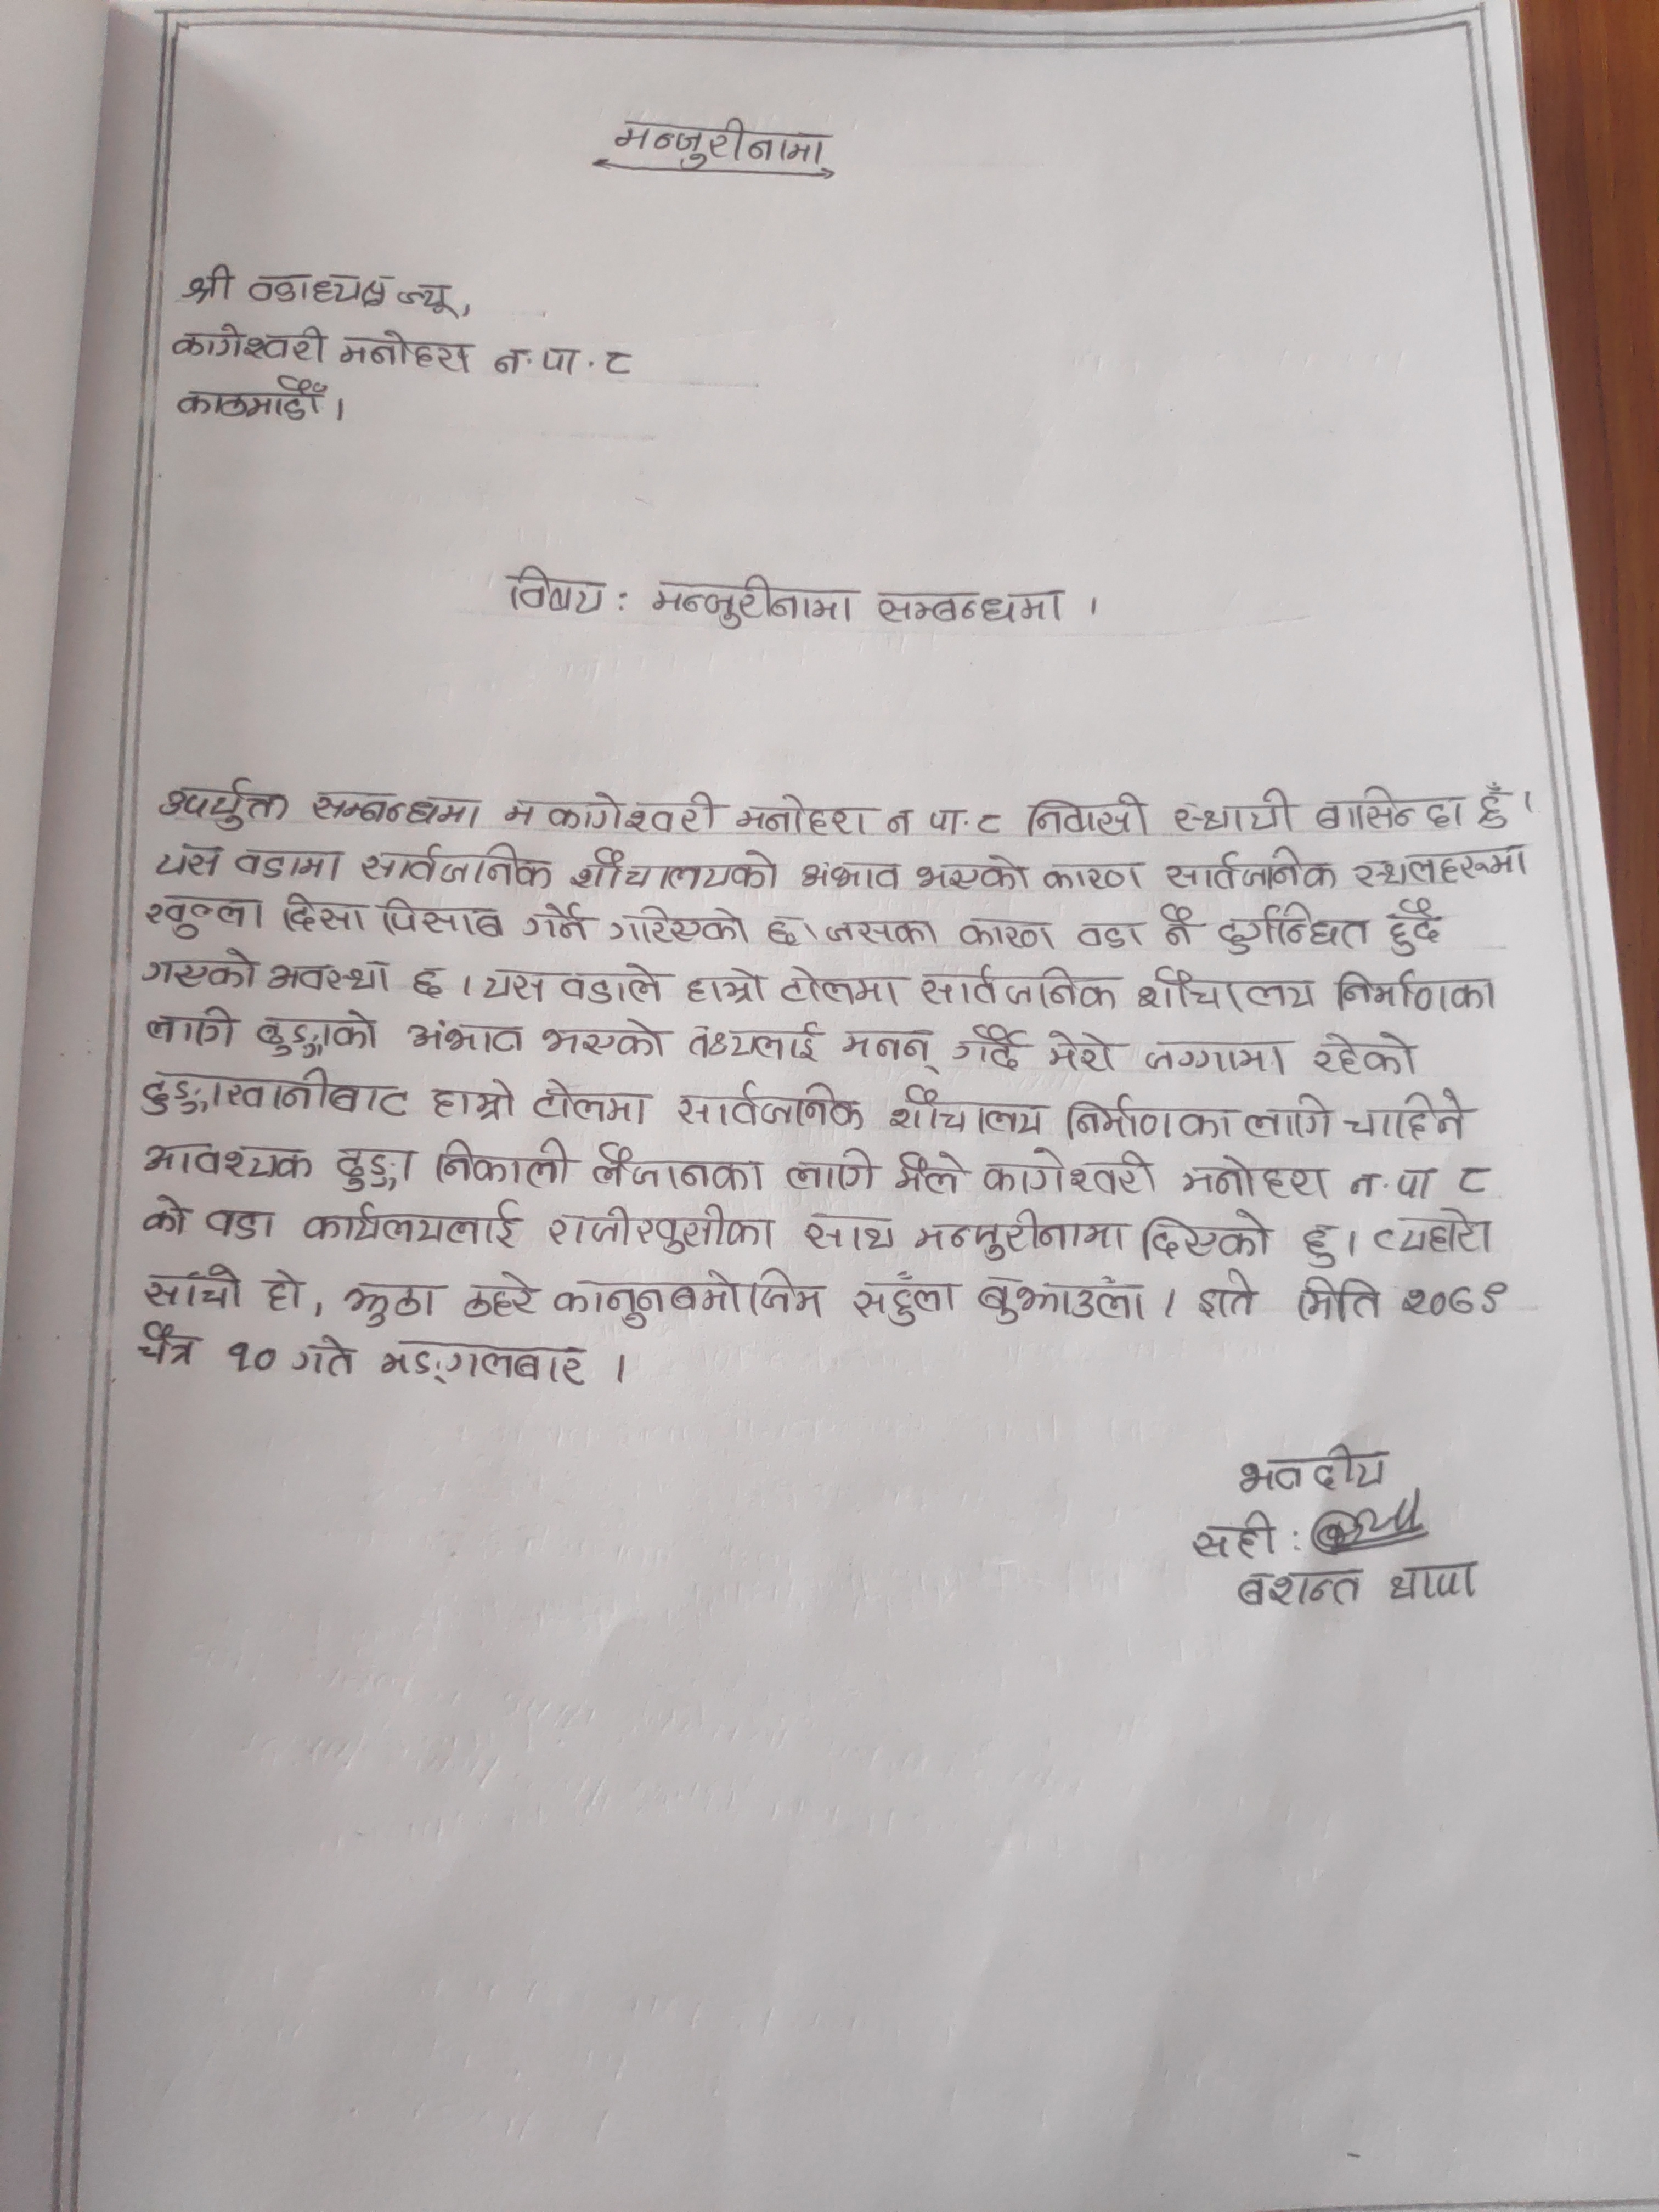 मन्जुरीनामा
श्री वडाध्यक्ष ज्यू,
कागेश्वरी मनोहरा न.पा.८
काठमाडौँ।
विषय: मन्जुरीनामा सम्बन्धमा ।
उपर्युक्त सम्बन्धमा म कागेश्वरी मनोहरा न पा.८ निवासी स्थायी बासिन्दा हुँ।
यस वडामा सार्वजानिक शौचालयको अभाव भएको कारण सार्वजानिक स्थलहरूमा
खुल्ला दिसा पिसाब गर्ने गरिएको छ। जसका कारण वडा नै दुर्गन्धित हुँदै
गएको अवस्था छ । यस वडाले हाम्रो टोलमा सार्वजानिक शौचालय निर्माणका
लागि ढुङ्गाको अभाव भएको तथ्यलाई मनन् गर्दै मेरो जग्गामा रहेको
ढुङ्गाखानीबाट हाम्रो टोलमा सार्वजानिक शौचालय निर्माणका लागि चाहिने
आवश्यक ढुङ्गा निकाली लैजानका लागि मैले कागेश्वरी मनोहरा न.पा ८
को वडा कार्यलयलाई राजीखुसीका साथ मन्जुरीनामा दिएको हु। व्यहोरा
साँचो हो, झुठा ठहरे कानुनबमोजिम सहुँला बुझाउँला। इति मिति २०७९
चैत्र १० गते मङ्गलबार ।
भवदीय
सही :
बशन्त थापा